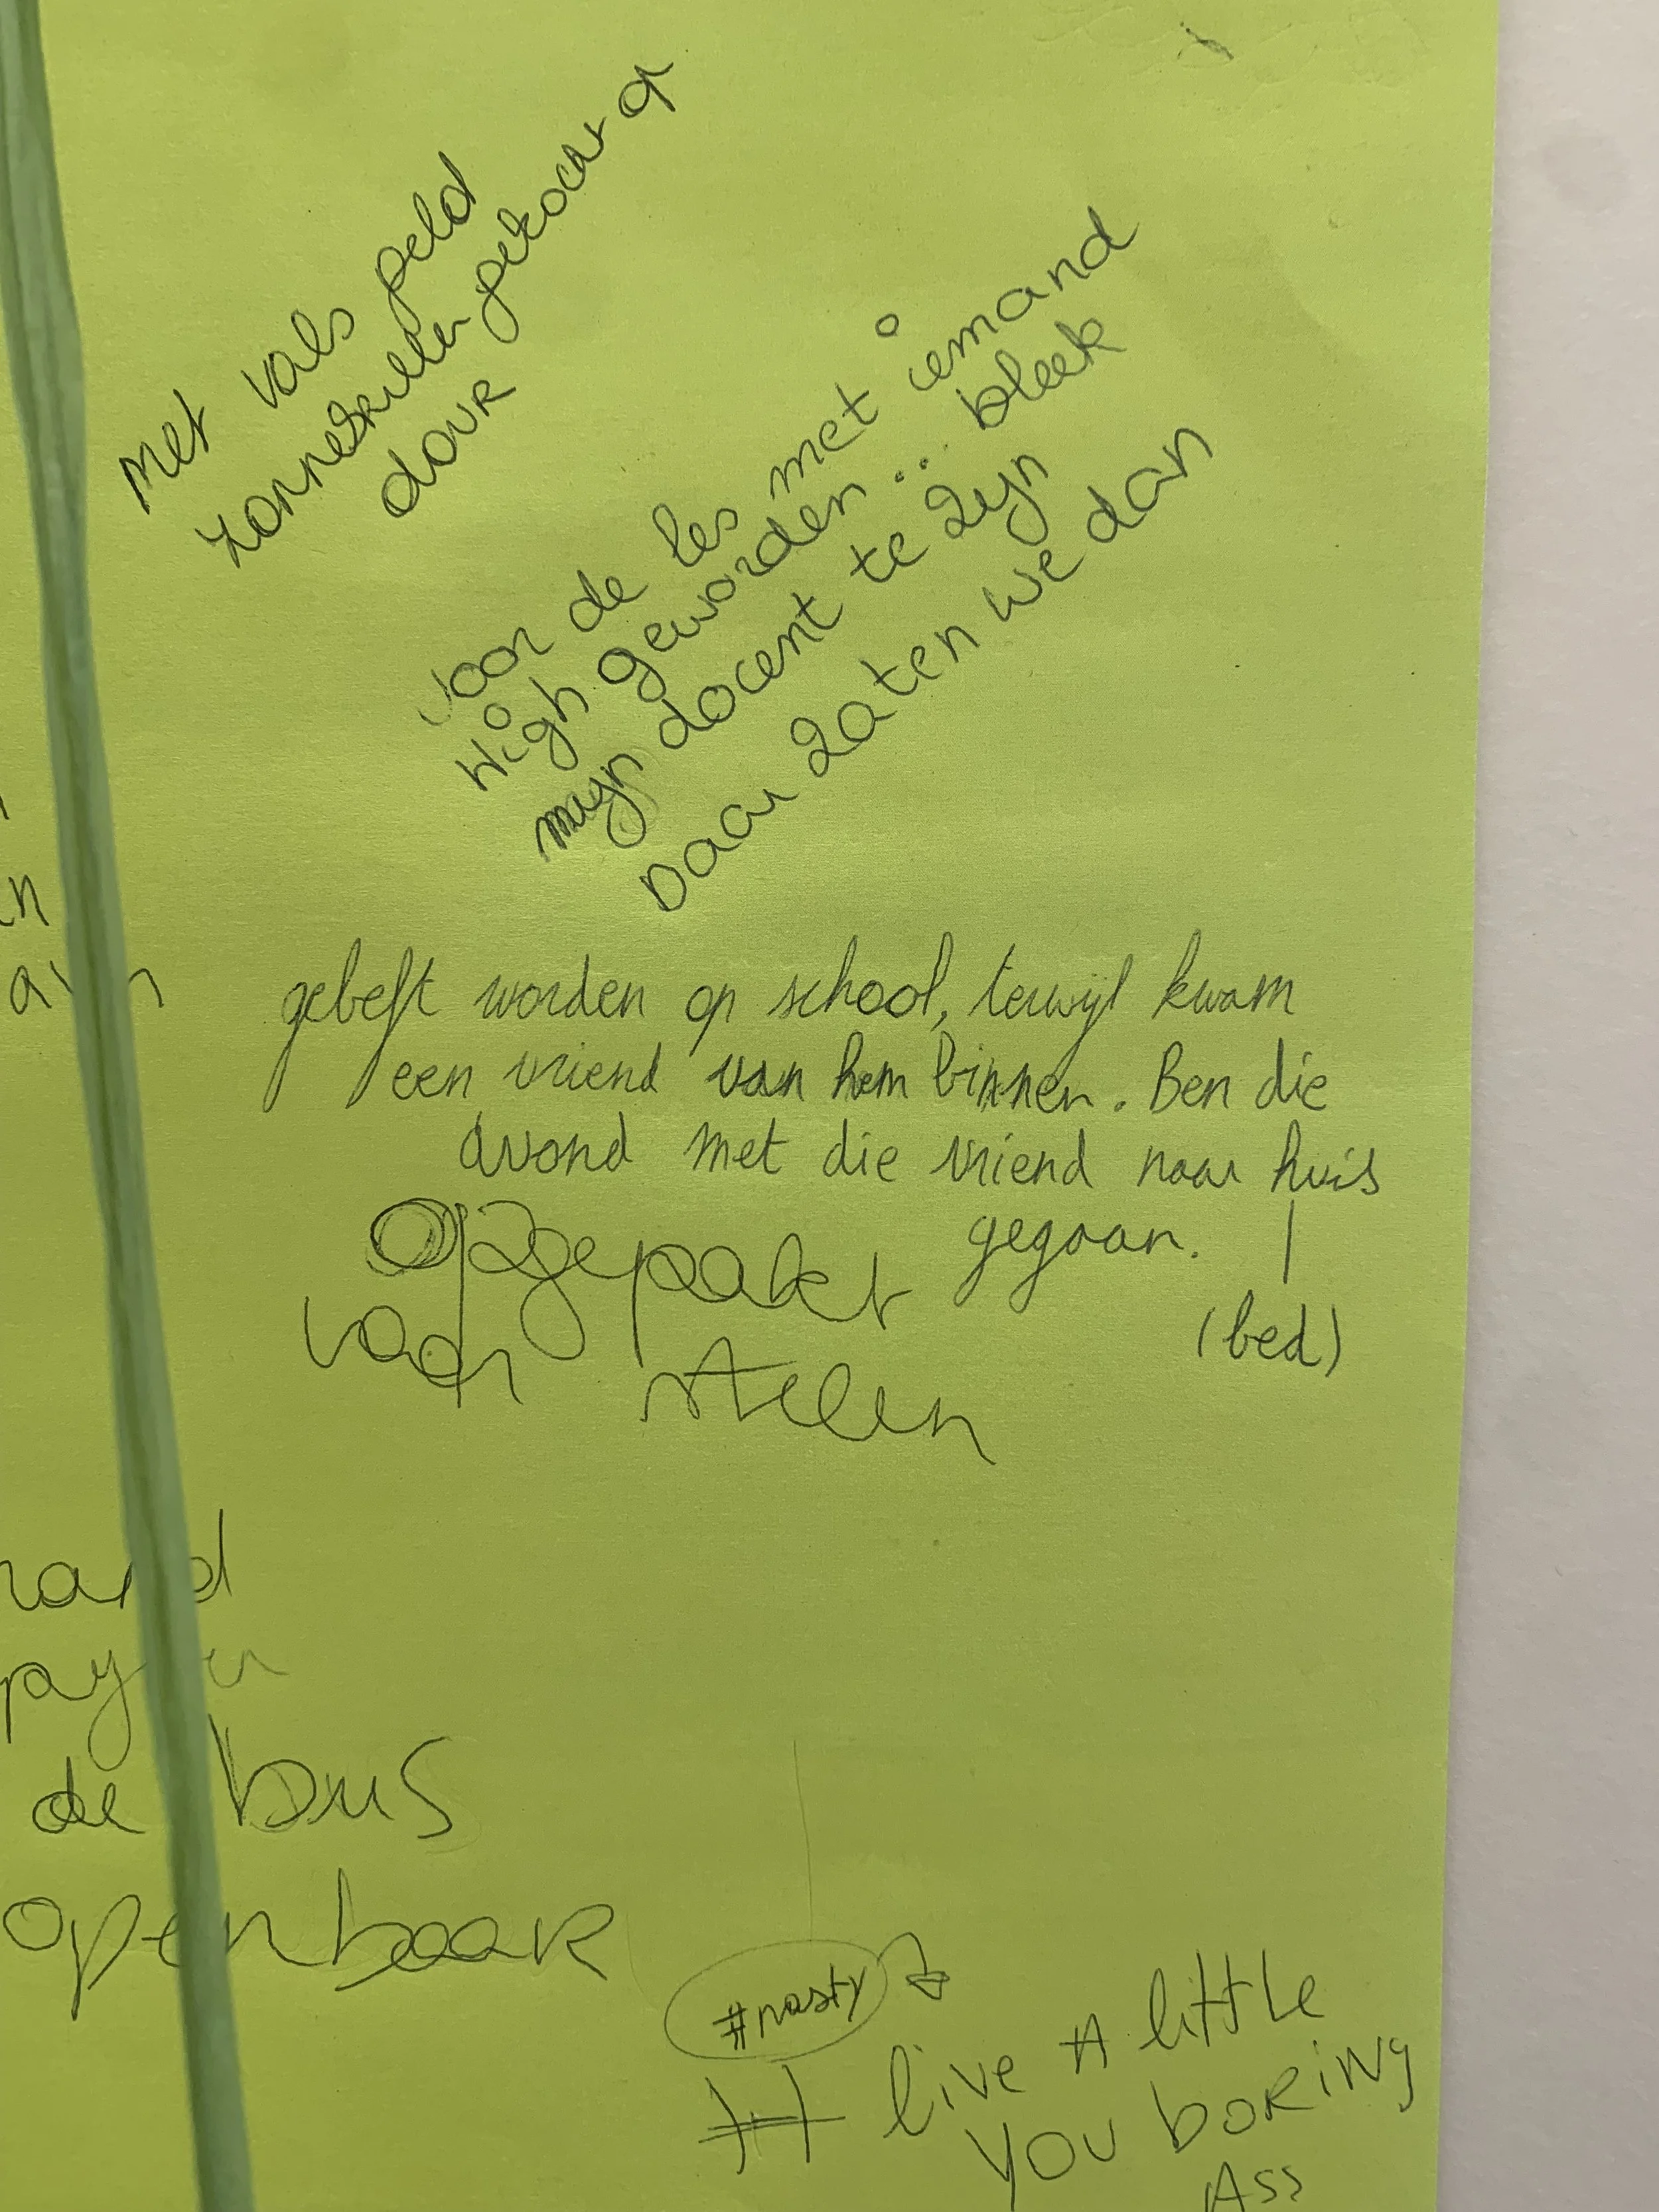 met vals geld
zonnebrillen gekocht op
dour
voor de les met iemand
High geworden... bleek
mijn docent te zijn
Daar zaten we dan
gebeft worden op school, terwijl kwam
een vriend van hem binnen. Ben die
avond met die vriend naar huis
gegaan.
(bed)
opgepakt
voor stelen
de bus
openbaar
#nasty
# live A little
you boring
Ass